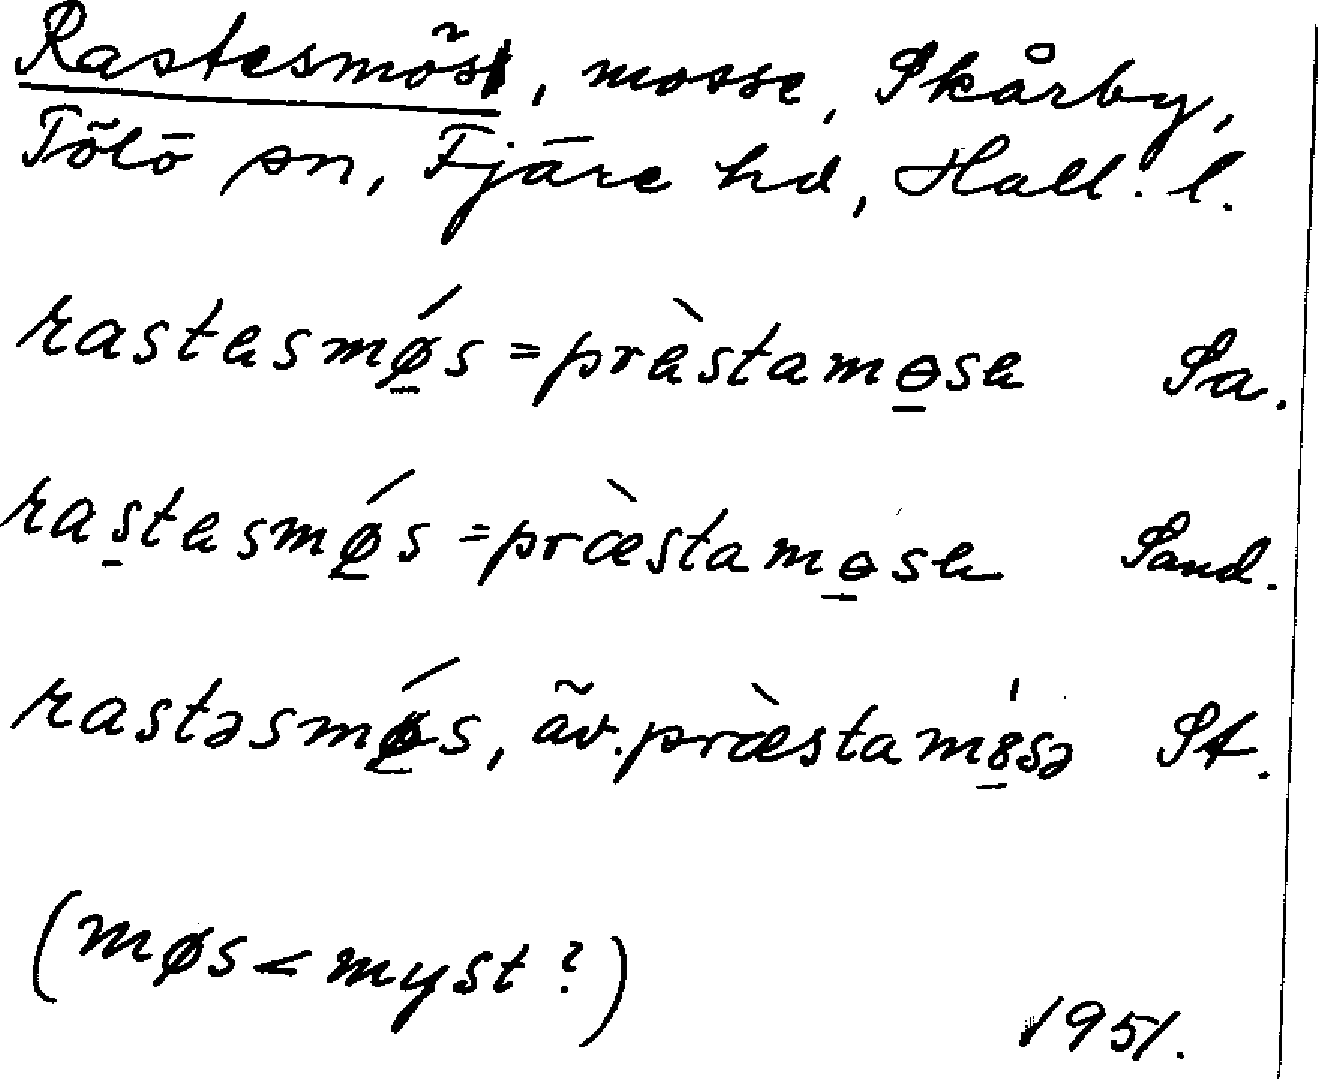 Rastesmöst, mosse, Skårby,
Tölö sn, Fjäre hd, Hall. l.
rastesmǿ̱s = prèstamɵ̱se Sa.
ras̱tesmǿ̱s = præ̀stamɵ̱se Sand.
rastəsmǿ̱s, äv. præ̀stamɵ̱sə St.
(møs < myst?)
1951.